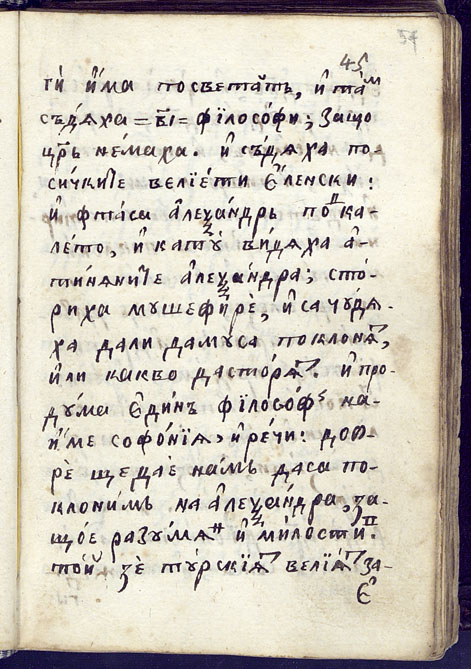 45 54
ги҆ и҆́ма посвета́тъ, и҆ та́ⷨ
съ́дяха = в҃і = фїлосо́фи; защо
цр҃ь не́маха. и҆ съ́дяха по-
си́чкиꙉе велїе́ти є҆́ленски:
и҆ фта́са а҆леѯа́ндрь поⷣ ка-
ле́то, и҆ кату̀ ви́дяха а҆-
тиня́ните а҆леѯа́ндра; сто́-
риха мушефи́рѐ, и҆ са чу́дя-
ха дали дамуса поклоня́ⷮ,
и҆́ли какво дасторя́ⷮ. и҆ про-
ду́ма є҆ди́нъ фїлосо́фъ на-
и҆́ме софо́нїѧ, и҆ ре́чи: доб-
рѐ щеда́е на́мъ да́са по-
клони́мъ на а҆леѯа́ндра, за-
що́е разу́мяⷩ и҆ ми́лостиⷡ.
то́й зѐ ту́рскїѧⷮ велїѧⷮ за-
є҆